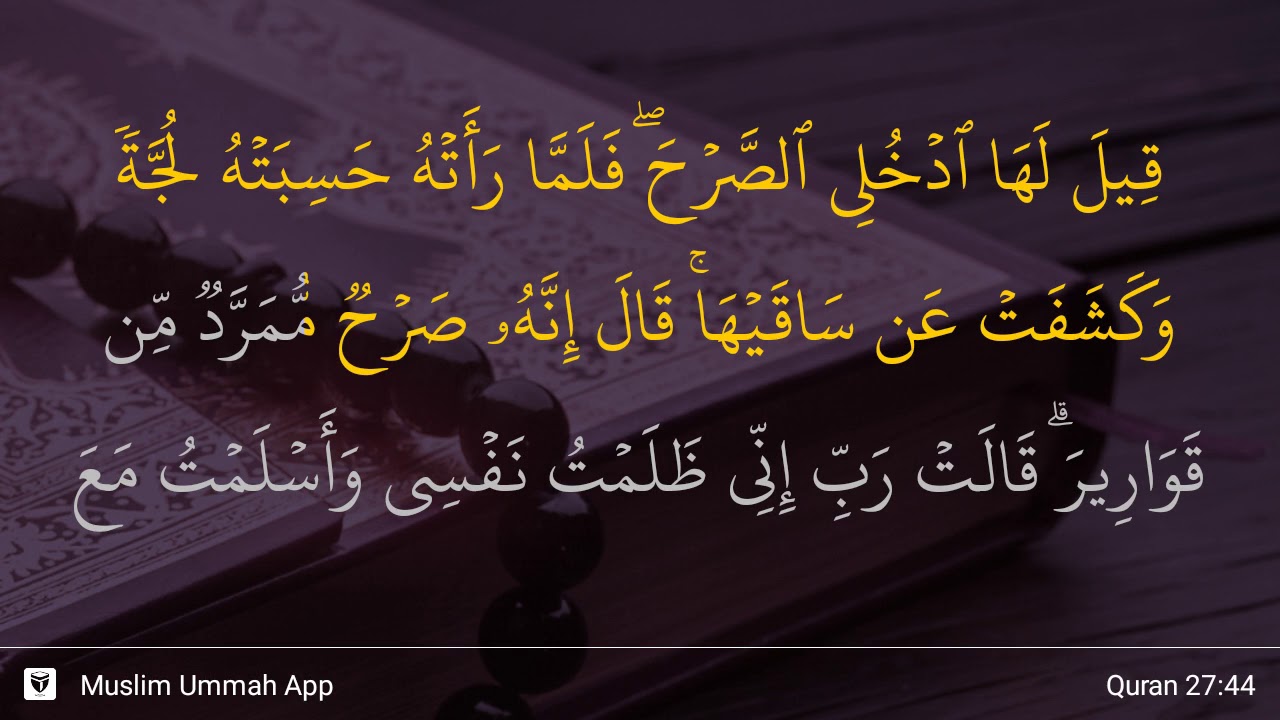 قِيلَ لَهَا ٱدۡخُلِي ٱلصَّرۡحَۖ فَلَمَّا رَأَتۡهُ حَسِبَتۡهُ لُجَّةٗ
وَكَشَفَتۡ عَن سَاقَيۡهَاۚ قَالَ إِنَّهُۥ صَرۡحٞ مُّمَرَّدٞ مِّن
قَوَارِيرَۗ قَالَتۡ رَبِّ إِنِّي ظَلَمۡتُ نَفۡسِي وَأَسۡلَمۡتُ مَعَ
Muslim Ummah App
Quran 27:44